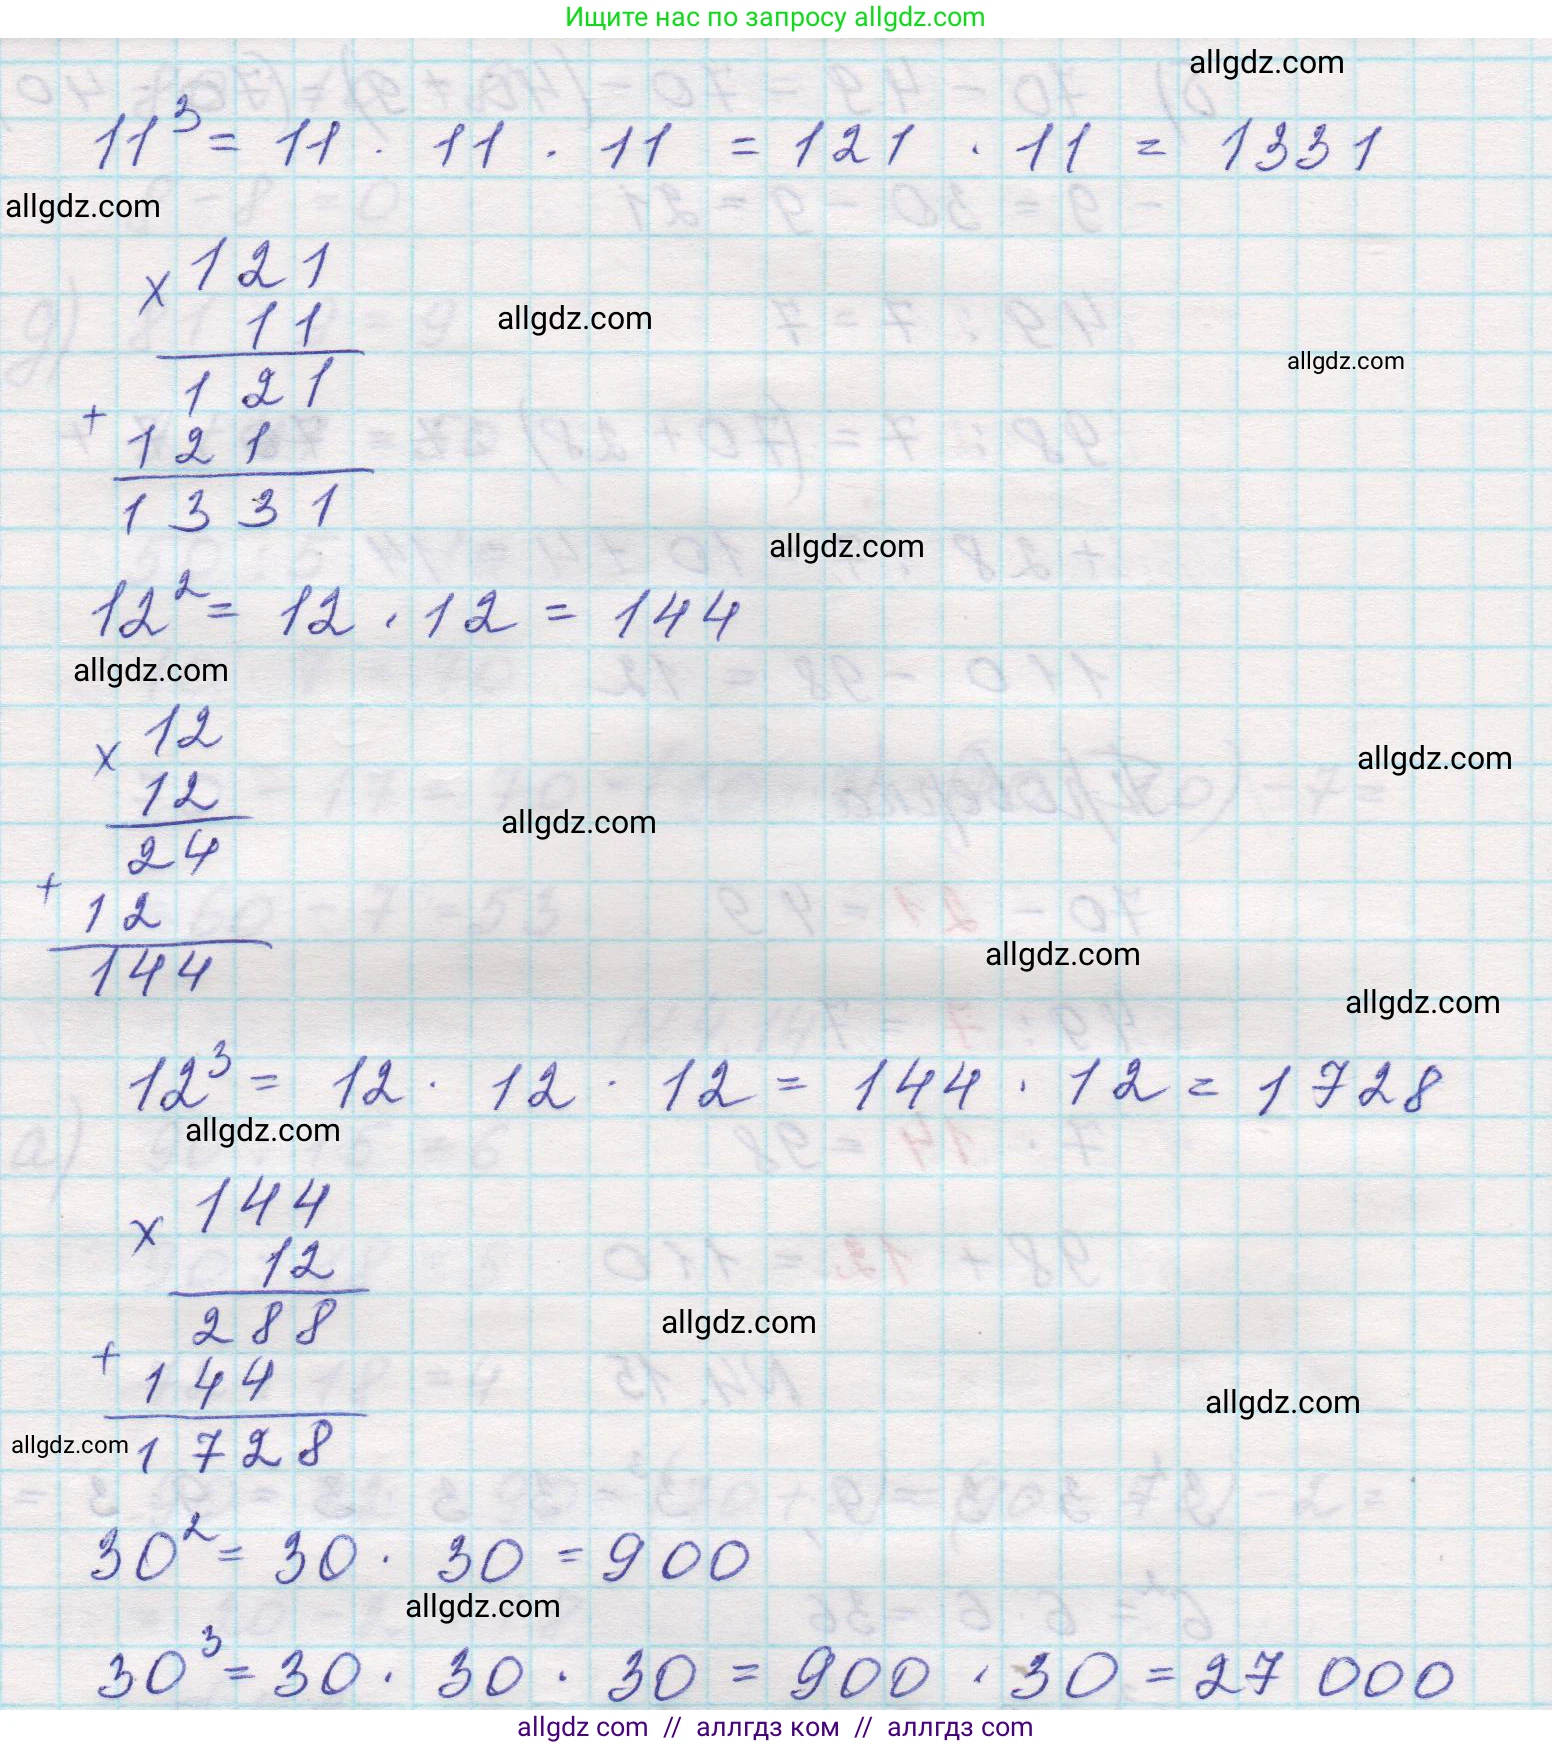 Ищите нас по запросу allgdz.com
allgdz.com
11³ = 11 · 11 · 11 = 121 · 11 = 1331
allgdz.com
× 121
11
allgdz.com
allgdz.com
121
+ 121
1331
allgdz.com
12² = 12 · 12 = 144
allgdz.com
× 12
12
allgdz.com
allgdz.com
24
+ 12
144
allgdz.com
allgdz.com
12³ = 12 · 12 · 12 = 144 · 12 = 1728
allgdz.com
× 144
12
288
allgdz.com
+ 144
allgdz.com
allgdz.com
1728
30² = 30 · 30 = 900
allgdz.com
30³ = 30 · 30 · 30 = 900 · 30 = 27 000
allgdz com // аллгдз ком // аллгдз com